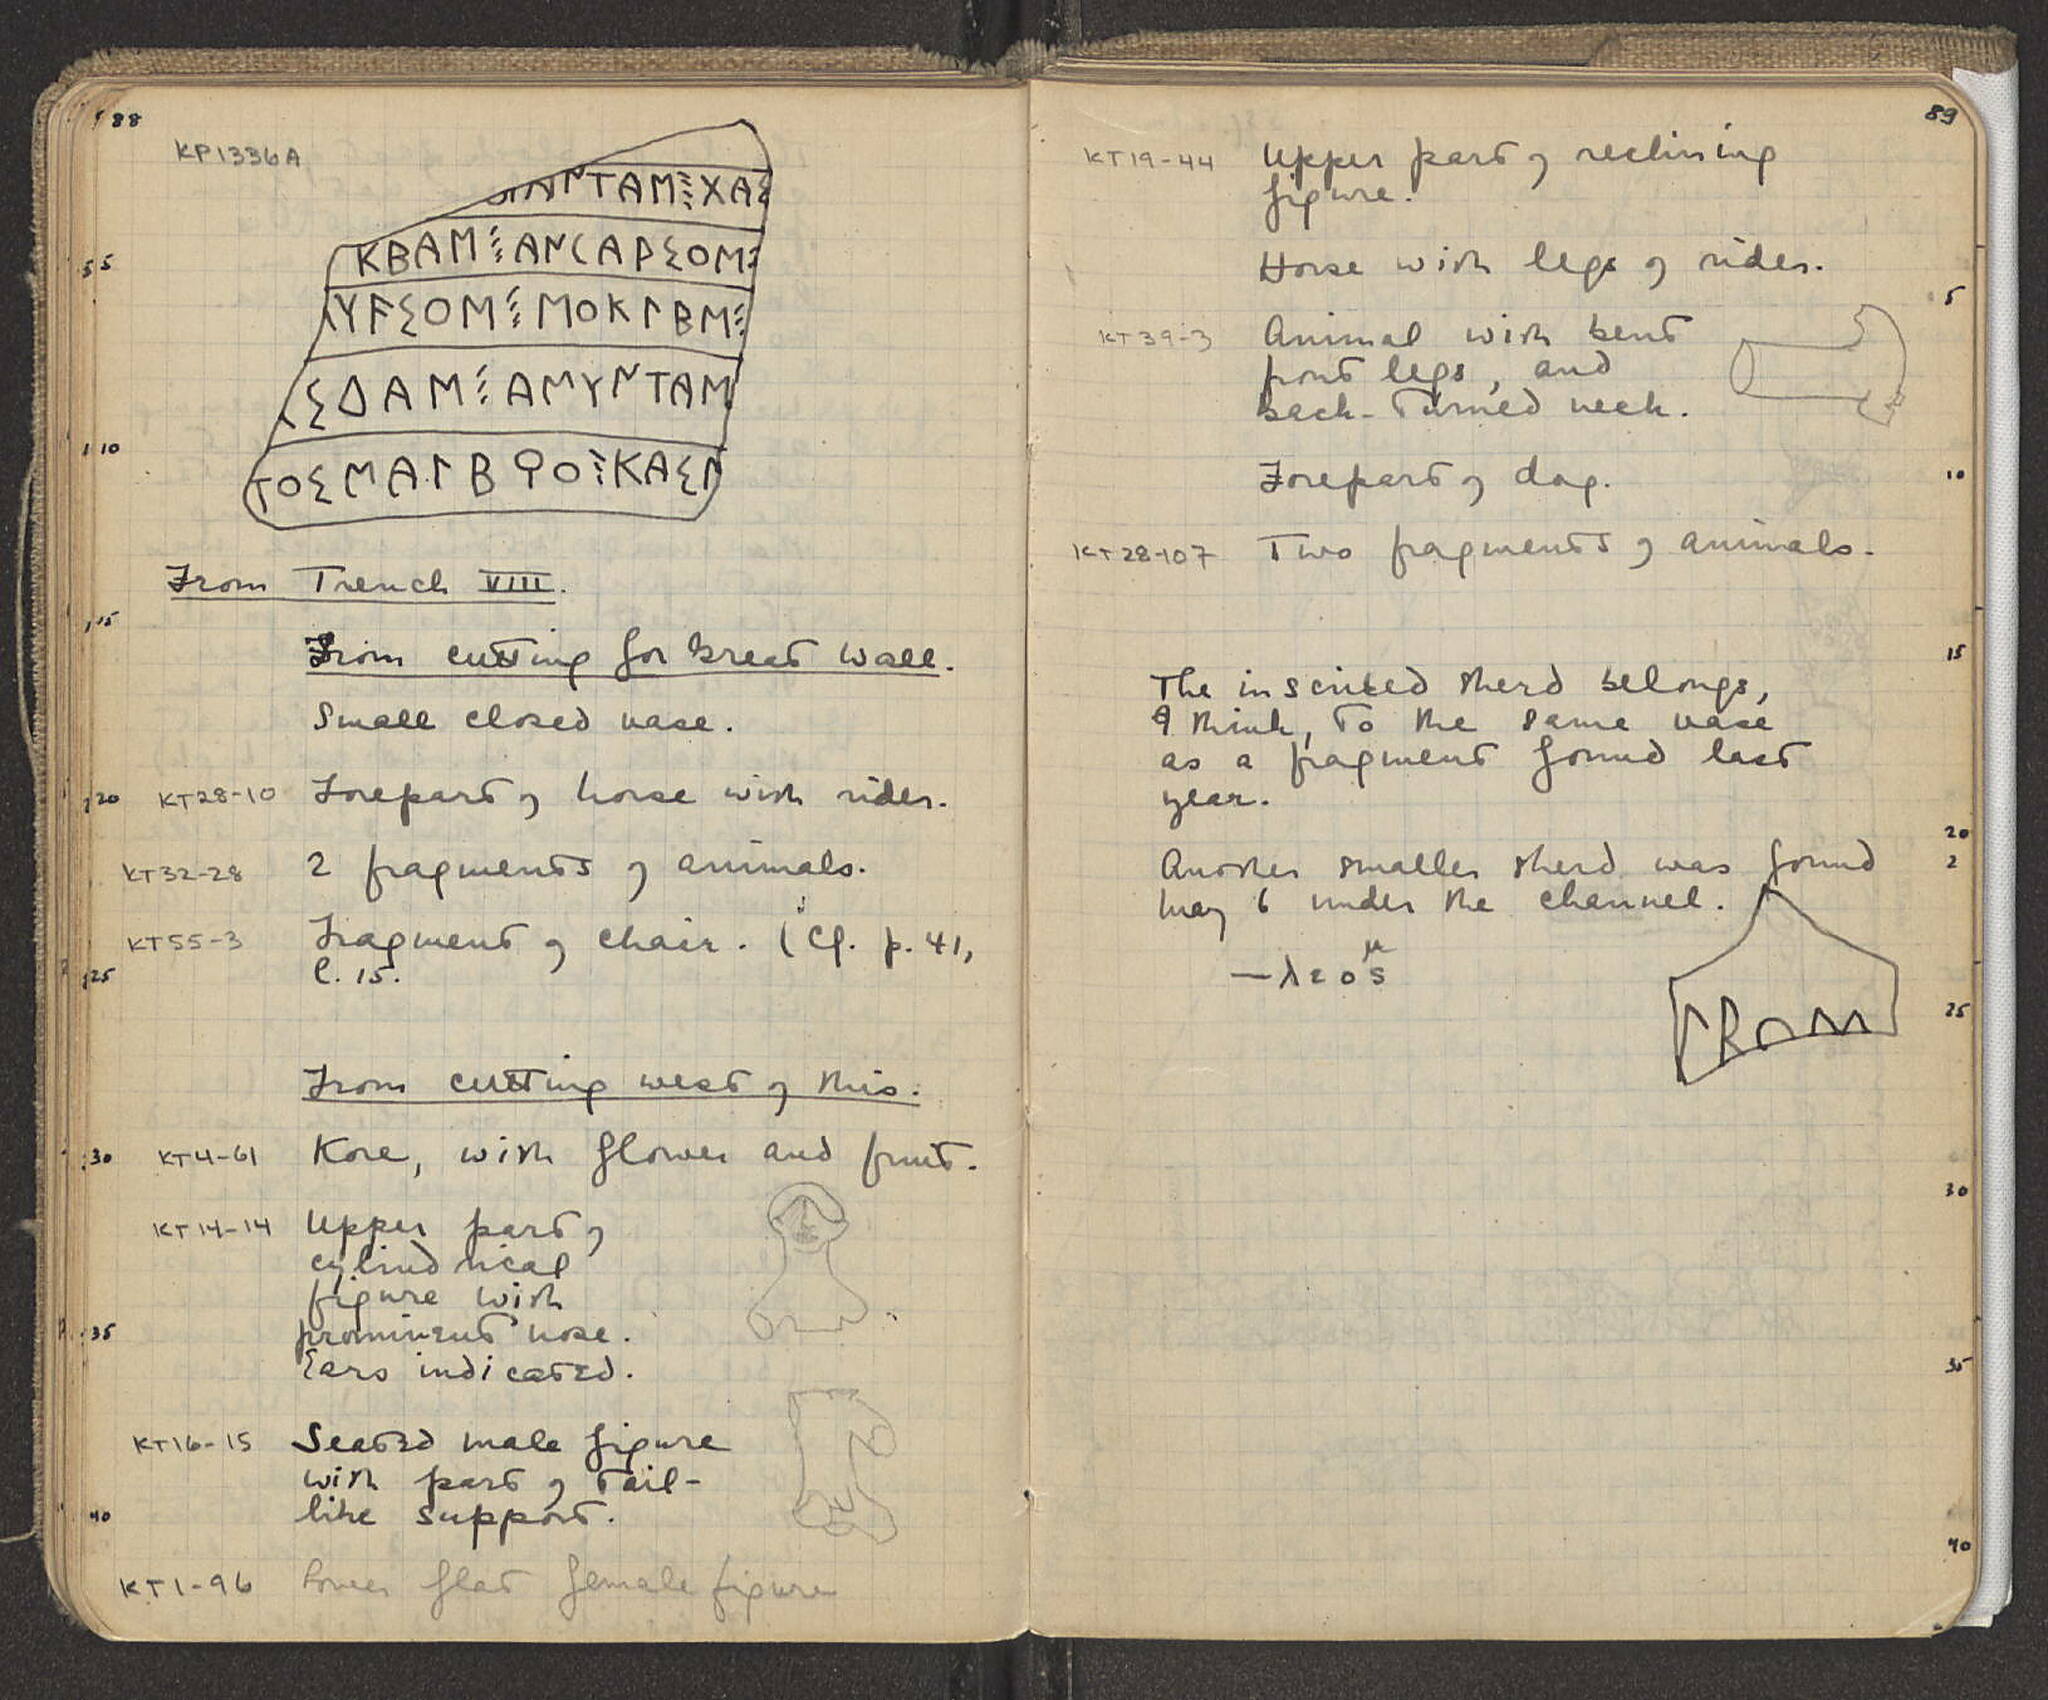 88
KP1336A
ΤΑΜ⋮ΧΑΣ
ΚΒΑΜ⋮ΑΝϹΑΡΣΟΜ⋮
ΥϜΣΟΜ⋮ΜΟΚΓΒΜ⋮
ΣΔΑΜ⋮ΑΜΥΝΤΑΜ
ΤΟΣΜΑΓΒϘΟ⋮ΚΑΣΓ
5
10
From Trench VIII.
15
From cutting for great wall.
Small closed vase.
20 KT28-10 Forepart of horse with rider.
KT32-28 2 fragments of animals.
KT55-3 Fragment of chair. (Cf. p. 41,
25 l. 15.
From cutting west of this.
30 KT4-61 Kore, with flower and fruit.
KT14-14 Upper part of
cylindrical
figure with
35 prominent nose.
Ears indicated.
KT16-15 Seated male figure
with part of tail-
40 like support.
KT1-96 Lower flat female figure
89
KT19-44 Upper part of reclining
figure.
Horse with legs of rider.
5
KT39-3 Animal with bent
front legs, and
back-turned neck.
Forepart of dog. 10
KT28-107 Two fragments of animals.
15
The inscribed sherd belongs,
I think, to the same vase
as a fragment found last
year.
20
Another smaller sherd was found 2
May 6 under the channel.
25
30
35
40